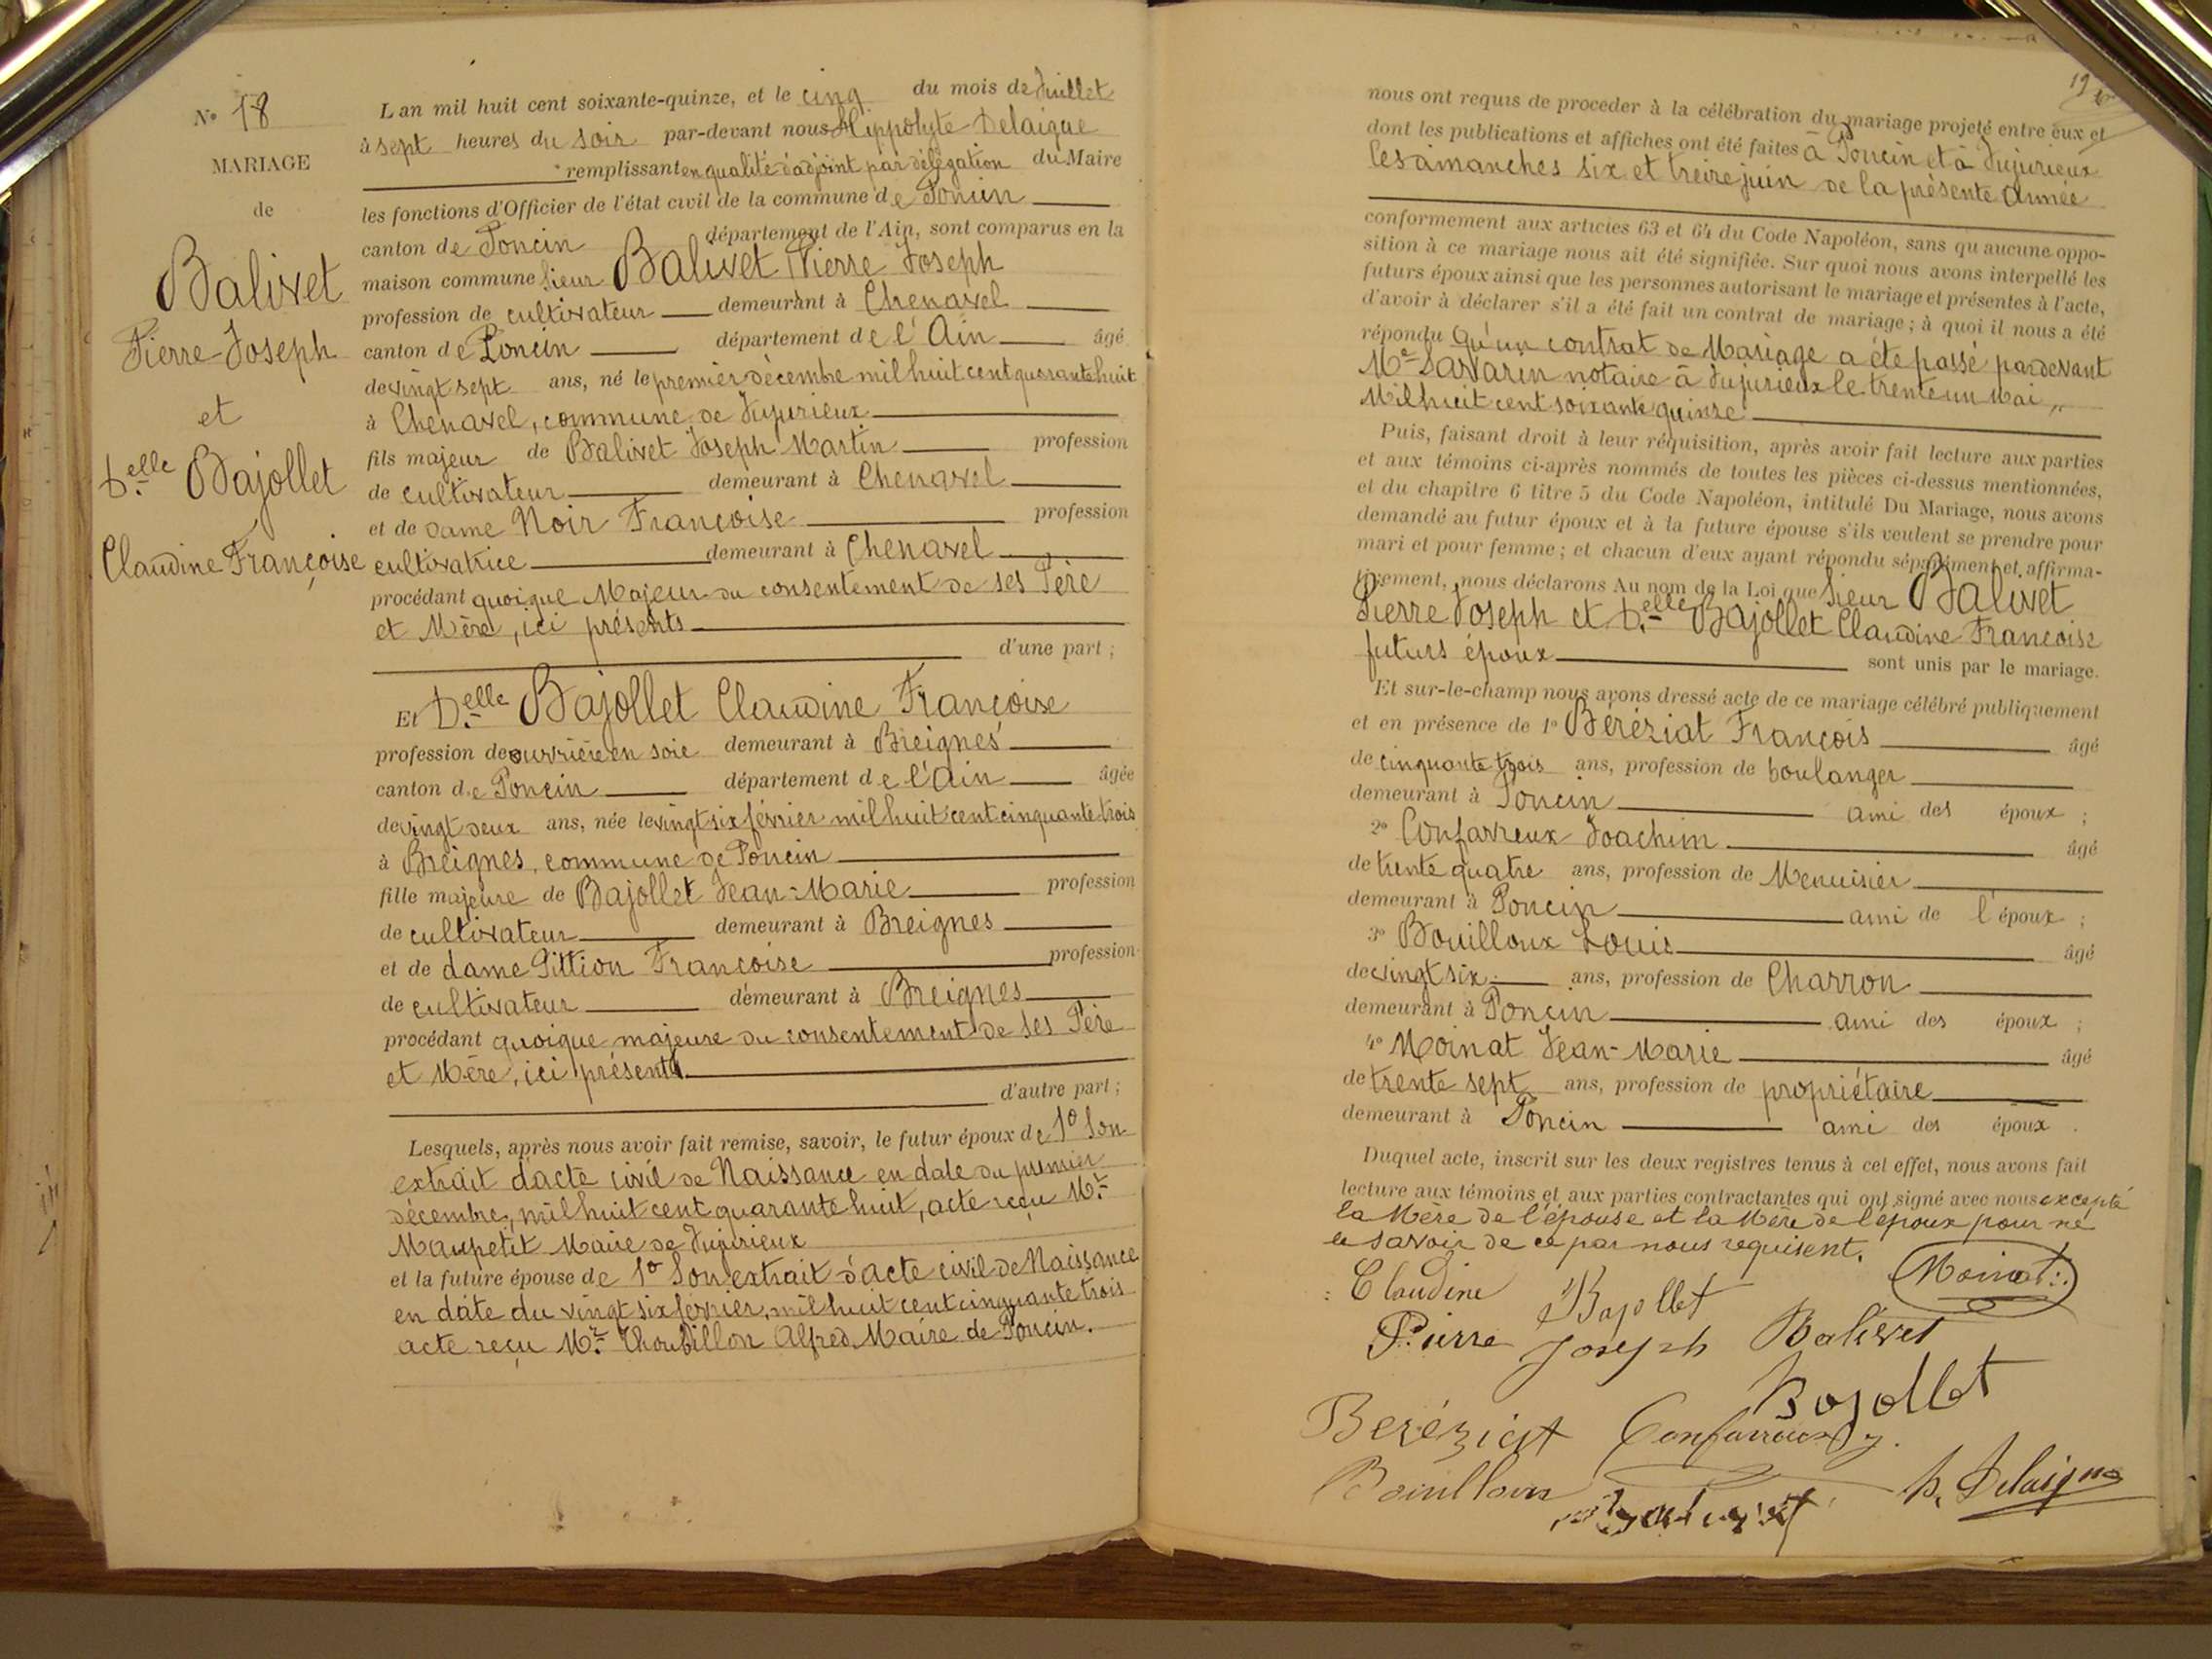 Nº 18
MARIAGE
de
Balivet
Pierre-Joseph
et
D.elle Bajollet
Claudine Françoise
L'an mil huit cent soixante-quinze, et le cinq du mois de Juillet
à sept heures du soir par-devant nous Hippolyte Delaigue
remplissant en qualité d'adjoint par délégation du Maire
les fonctions d'Officier de l'état civil de la commune de Poncin
canton de Poncin département de l'Ain, sont comparus en la
maison commune Sieur Balivet Pierre Joseph
profession de cultivateur demeurant à Chenavel
canton de Poncin département de l'Ain âgé
de vingt sept ans, né le premier décembre mil huit cent quarante huit
à Chenavel, commune de Jujurieux
fils majeur de Balivet Joseph Martin profession
de cultivateur demeurant à Chenavel
et de dame Noir Françoise profession
cultivatrice demeurant à Chenavel
procédant quoique Majeur du consentement de ses Père
et Mère, ici présents
d'une part ;
Et D.elle Bajollet Claudine Françoise
profession de ouvrière en soie demeurant à Breignes
canton de Poncin département de l'Ain âgée
de vingt deux ans, née le vingt six février mil huit cent cinquante trois
à Breignes, commune de Poncin
fille majeure de Bajollet Jean-Marie profession
de cultivateur demeurant à Breignes
et de dame Pittion Françoise profession
de cultivateur demeurant à Breignes
procédant quoique majeure du consentement de ses Père
et Mère, ici présents
d'autre part ;
Lesquels, après nous avoir fait remise, savoir, le futur époux de 1º Son
extrait d'acte civil de Naissance en date du premier
décembre, mil huit cent quarante huit, acte reçu Mr.
Maupetit Maire de Jujurieux
et la future épouse de 1º Son extrait d'acte civil de Naissance
en date du vingt six février, mil huit cent cinquante trois
acte reçu Mr. Alfred Maire de Poncin.
nous ont requis de procéder à la célébration du mariage projeté entre eux et
dont les publications et affiches ont été faites à Poncin et à Jujurieux
les dimanches six et treize juin de la présente Année
conformément aux articles 63 et 64 du Code Napoléon, sans qu'aucune oppo-
sition à ce mariage nous ait été signifiée. Sur quoi nous avons interpellé les
futurs époux ainsi que les personnes autorisant le mariage et présentes à l'acte,
d'avoir à déclarer s'il a été fait un contrat de mariage ; à quoi il nous a été
répondu Qu'un contrat de Mariage a été passé pardevant
Me Savarin notaire à Jujurieux le trente un Mai
Mil huit cent soixante quinze
Puis, faisant droit à leur réquisition, après avoir fait lecture aux parties
et aux témoins ci-après nommés de toutes les pièces ci-dessus mentionnées,
et du chapitre 6 titre 5 du Code Napoléon, intitulé Du Mariage, nous avons
demandé au futur époux et à la future épouse s'ils veulent se prendre pour
mari et pour femme ; et chacun d'eux ayant répondu séparément et affirma-
tivement, nous déclarons Au nom de la Loi que Sieur Balivet
Pierre Joseph et D.elle Bajollet Claudine Françoise
futurs époux sont unis par le mariage.
Et sur-le-champ nous avons dressé acte de ce mariage célébré publiquement
et en présence de 1º Béréziat François âgé
de cinquante trois ans, profession de boulanger
demeurant à Poncin ami des époux ;
2º Confavreux Joachim âgé
de trente quatre ans, profession de Menuisier
demeurant à Poncin ami de l'époux ;
3º Bouilloux Louis âgé
de vingt six ans, profession de Charron
demeurant à Poncin ami des époux ;
4º Moinat Jean-Marie âgé
de trente sept ans, profession de propriétaire
demeurant à Poncin ami des époux.
Duquel acte, inscrit sur les deux registres tenus à cet effet, nous avons fait
lecture aux témoins et aux parties contractantes qui ont signé avec nous excepté
la Mère de l'épouse et la Mère de l'époux pour ne
le savoir de ce par nous requisent.
Claudine Bajollet Moinat
Pierre Joseph Balivet
Bajollet
Béréziat Confavreux J.
Bouilloux Balivet h. Delaigue